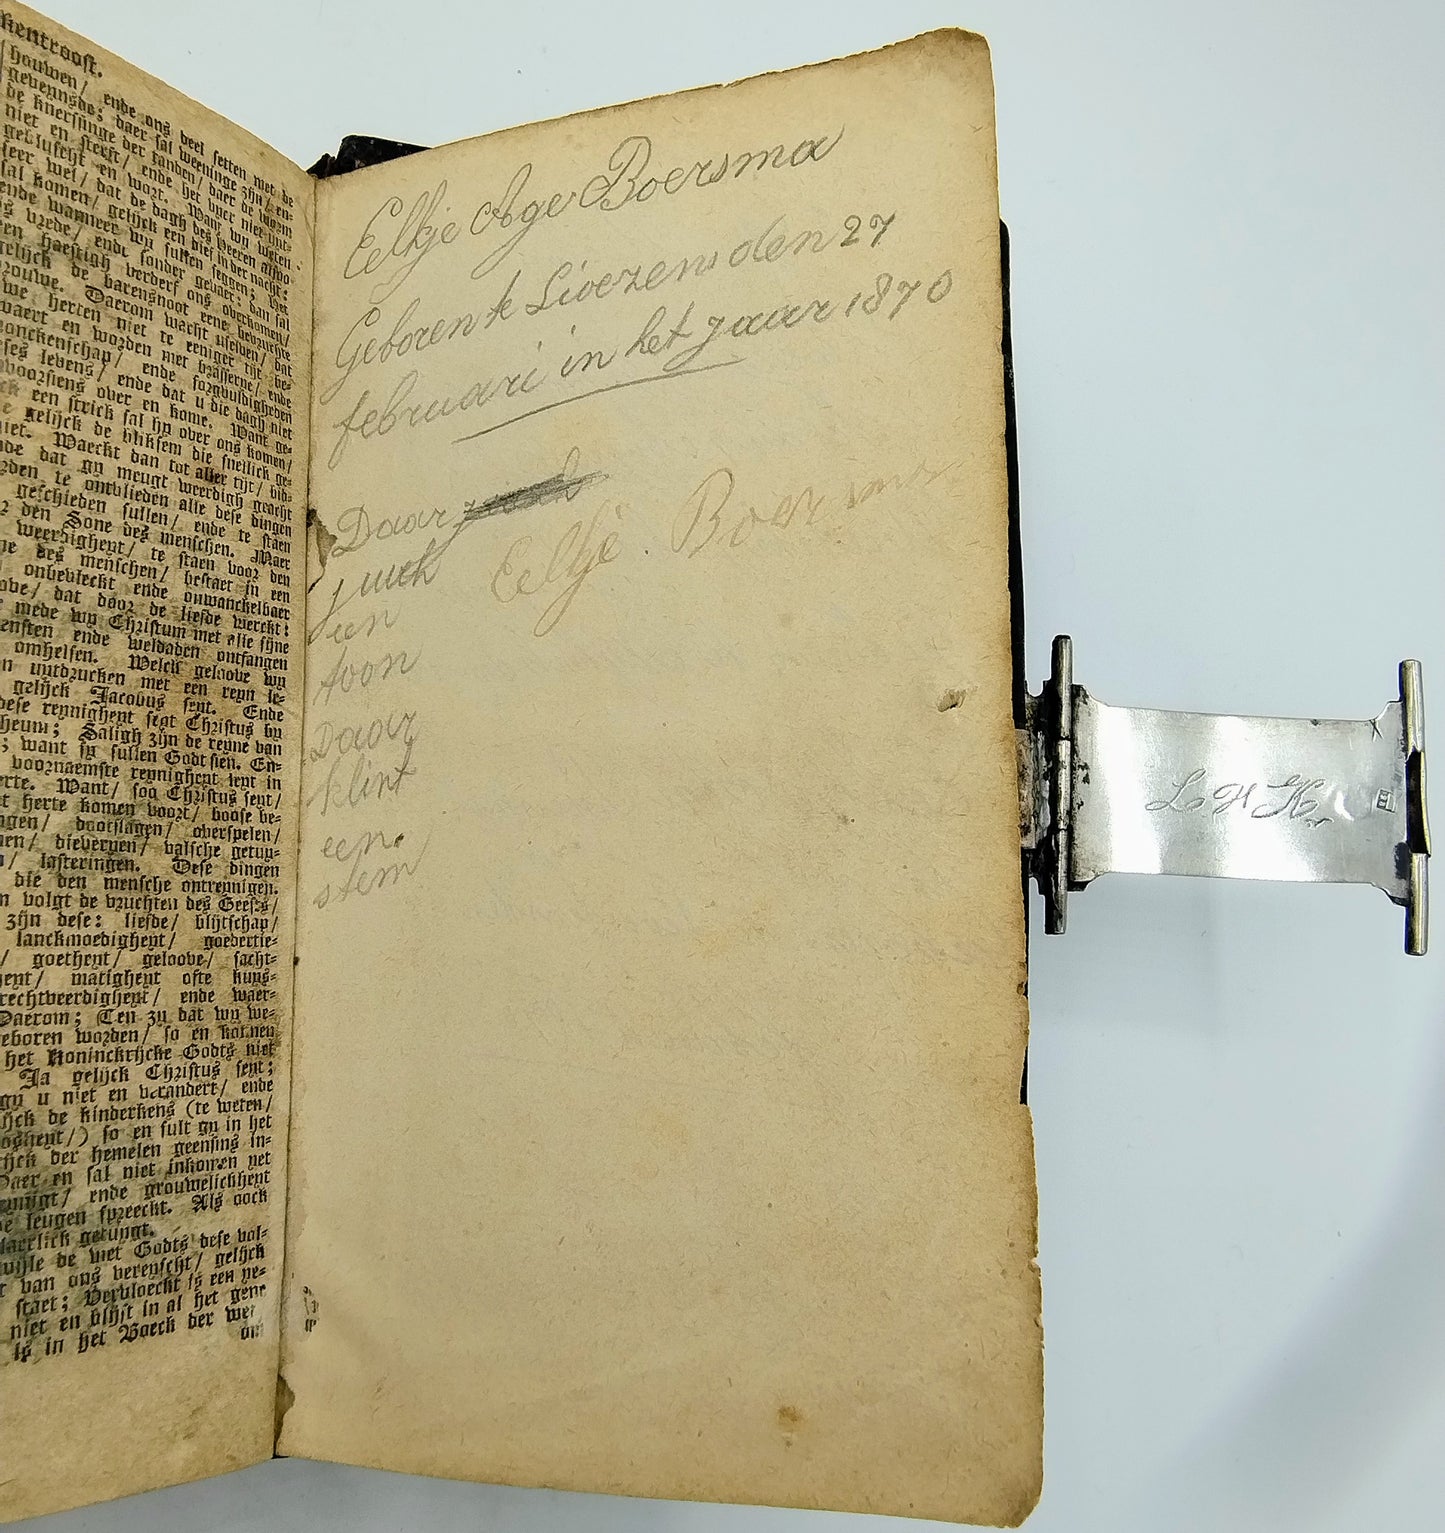 kentroost.
houwen/ ende ons deel setten met de
geveynsde; daer sal weeninge zijn/ en-
de knerssinge der tanden/ daer de worm
niet en sterft/ ende het vyer niet uyt-
gebluscht en wort. Want wy weten
seer wel/ dat de dagh des Heeren alsoo
sal komen/ gelijck een dief in der nacht:
ende wanneer wy sullen seggen; Het
is vrede/ ende sonder gevaer: dan sal
een haestigh verderf ons overkomen/
gelijck de barensnoot eene bevruchte
vrouwe. Daerom wacht uselven/ dat
uwe herten niet te eeniger tijt be-
swaert en worden met brasserye/ ende
dronckenschap/ ende sorghvuldigheden
deses levens/ ende dat u die dagh niet
onvoorsiens over en kome. Want ge-
lijck een strick sal hy over ons komen/
gelijck de blicksem die snellick ge-
schiet. Waeckt dan tot aller tijt/ bid-
dende dat gy meugt weerdigh geacht
worden te ontvlieden alle dese dingen
geschieden sullen/ ende te staen
voor den Sone des menschen. Maer
weerdigheyt/ te staen voor den
Sone des menschen/ bestaet in een
onbevleckt ende onwanckelbaer
geloove/ dat door de liefde werckt:
mede wy Christum met alle sijne
diensten ende weldaden ontfangen
omhelsen. Welck geloove wy
uytdrucken met een reyn le-
gelijck Jacobus seyt. Ende
dese reynigheyt segt Christus by
heum; Saligh zijn de reyne van
; want sy sullen Godt sien. En-
voornaemste reynigheyt leyt in
herte. Want/ soo Christus seyt/
het herte komen voort/ boose be-
dootslagen/ overspelen/
dieveryen/ valsche getuy-
/ lasteringen. Dese dingen
die den mensche ontreynigen.
volgt de vruchten des Geests/
zijn dese: liefde/ blijtschap/
lanckmoedigheyt/ goedertie-
/ goetheyt/ geloove/ sacht-
matigheyt ofte kuys-
rechtveerdigheyt/ ende waer-
Daerom; Ten zy dat wy we-
geboren worden/ so en konnen
het Koninckrijcke Godts niet
Ja gelijck Christus seyt;
gy u niet en verandert/ ende
gelijck de kinderkens (te weten/
boosheyt/) so en sult gy in het
rijck der hemelen geensins in-
Daer en sal niet inkomen yet
ende grouwelickheyt
leugen spreeckt. Als oock
klaerlick getuygt.
de wet Godts dese vol-
van ons vereyscht/ gelijck
staet; Vervloeckt is een ye-
niet en blijft in al het gene
is in het Boeck der wet
om
Eelkje Ages Boersma
Geboren te Lioezens den 27
februari in het jaar 1870
Daar
juich Eelkje Boersma
een
toon
Daar
klint
een
stem
L. H K.